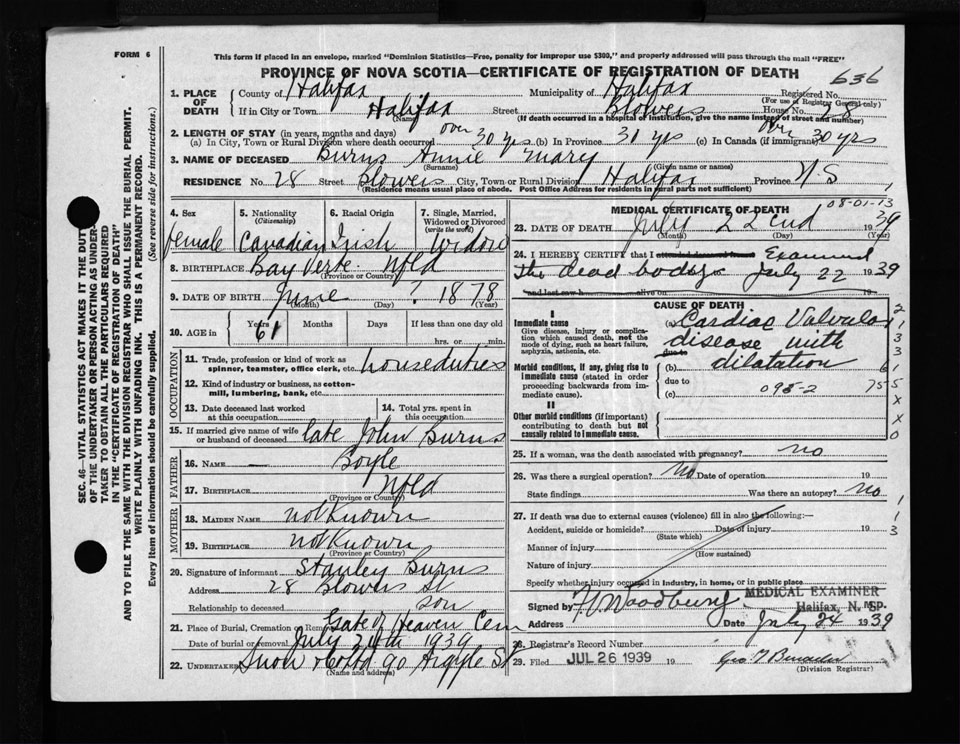 FORM 6
This form if placed in an envelope, marked "Dominion Statistics—Free, penalty for improper use $300," and properly addressed will pass through the mail "FREE"
PROVINCE OF NOVA SCOTIA—CERTIFICATE OF REGISTRATION OF DEATH
636
1. PLACE OF DEATH
County of Halifax Municipality of Halifax Registered No.
(For use of Registrar General only)
If in City or Town Halifax Street Blowers House No. 28
(Name) (If death occurred in a hospital or institution, give the name instead of street and number)
2. LENGTH OF STAY (in years, months and days)
(a) In City, Town or Rural Division where death occurred over 30 yrs (b) In Province 30 yrs (c) In Canada (if immigrant) over 30 yrs
3. NAME OF DECEASED Burns Annie Mary
(Surname) (Given name or names)
RESIDENCE No. 28 Street Blowers City, Town or Rural Division Halifax Province N S
(Residence means usual place of abode. Post Office Address for residents in rural parts not sufficient)
4. Sex female
5. Nationality (Citizenship) Canadian
6. Racial Origin Irish
7. Single, Married, Widowed or Divorced (write the word) Widow
8. BIRTHPLACE Bay Verte Nfld
(Province or Country)
9. DATE OF BIRTH June ? 1878
(Month) (Day) (Year)
10. AGE in Years 61 Months Days If less than one day old
hrs. or min.
OCCUPATION
11. Trade, profession or kind of work as spinner, teamster, office clerk, etc. houseduties
12. Kind of industry or business, as cotton-mill, lumbering, bank, etc.
13. Date deceased last worked at this occupation
14. Total yrs. spent in this occupation
15. If married give name of wife or husband of deceased late John Burns
FATHER
16. Name — Boyle
17. Birthplace Nfld
(Province or Country)
MOTHER
18. Maiden Name not Known
19. Birthplace not Known
(Province or Country)
20. Signature of informant Stanley Burns
Address 28 Blowers St
Relationship to deceased son
21. Place of Burial, Cremation or Removal Gate of Heaven Cem
Date of burial or removal July 24th 1939
22. Undertaker Snow & Co Ltd 90 Argyle St
(Name and address)
MEDICAL CERTIFICATE OF DEATH
08-01-13
23. DATE OF DEATH July 22nd 1939
(Month) (Day) (Year)
24. I HEREBY CERTIFY that I attended deceased from Examined
the dead body July 22 1939
and last saw h alive on 19
CAUSE OF DEATH
I
Immediate cause
Give disease, injury or complication which caused death, not the mode of dying, such as heart failure, asphyxia, asthenia, etc.
(a) Cardiac Valvular
disease with
due to
(b) dilatation
Morbid conditions, if any, giving rise to immediate cause (stated in order proceeding backwards from immediate cause).
due to
(c) 093-2
II
Other morbid conditions (if important) contributing to death but not causally related to immediate cause.
25. If a woman, was the death associated with pregnancy? no
26. Was there a surgical operation? No Date of operation 19
State findings Was there an autopsy? no
27. If death was due to external causes (violence) fill in also the following:—
Accident, suicide or homicide? Date of injury 19
(State which)
Manner of injury
(How sustained)
Nature of injury
Specify whether injury occurred in industry, in home, or in public place
Signed by Woodbury MEDICAL EXAMINER
Halifax, N. S.
Address Date July 24 1939
28. Registrar's Record Number
29. Filed JUL 26 1939 19
(Division Registrar)
SEC. 46—VITAL STATISTICS ACT MAKES IT THE DUTY
OF THE UNDERTAKER OR PERSON ACTING AS UNDER-
TAKER TO OBTAIN ALL THE PARTICULARS REQUIRED
IN THE "CERTIFICATE OF REGISTRATION OF DEATH"
AND TO FILE THE SAME WITH THE DIVISION REGISTRAR WHO SHALL ISSUE THE BURIAL PERMIT.
WRITE PLAINLY WITH UNFADING INK. THIS IS A PERMANENT RECORD.
Every item of information should be carefully supplied. (See reverse side for instructions.)